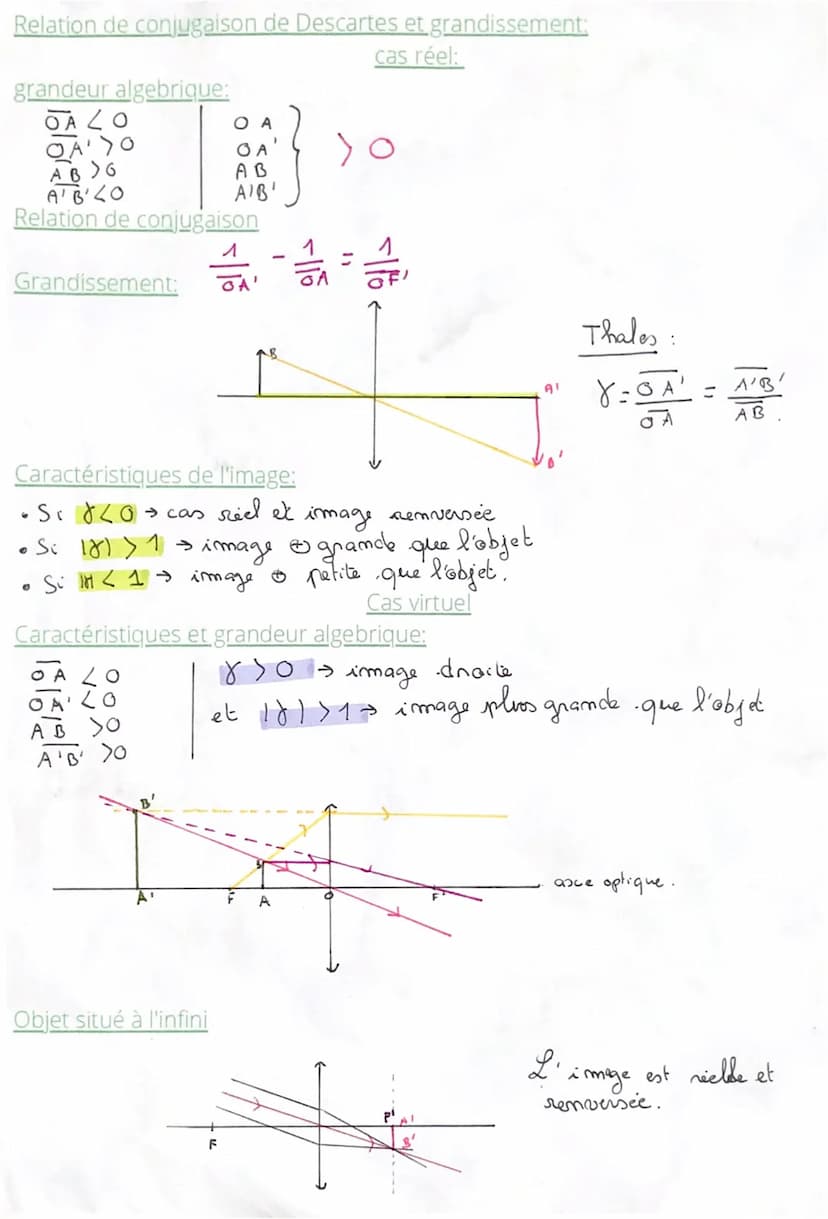 Relation de conjugaison de Descartes et grandissement:
cas réel:
grandeur algebrique:
OA < 0
OA' > 0
AB > 0
A'B' < 0
OA
OA'
AB
A'B'
> 0
Relation de conjugaison
1/OA' - 1/OA = 1/OF'
Grandissement:
B
A'
B'
Thales :
γ = OA'/OA = A'B'/AB.
Caractéristiques de l'image:
• Si γ < 0 → cas réel et image renversée
• Si |γ| > 1 → image ⊕ grande que l'objet
• Si |γ| < 1 → image ⊕ petite que l'objet.
Cas virtuel
Caractéristiques et grandeur algebrique:
OA < 0
OA' < 0
AB > 0
A'B' > 0
γ > 0 → image droite
et |γ| > 1 → image plus grande que l'objet
B'
B
A'
F
A
O
F'
axe optique.
Objet situé à l'infini
F
F'
A'
B'
L'image est réelle et
renversée.